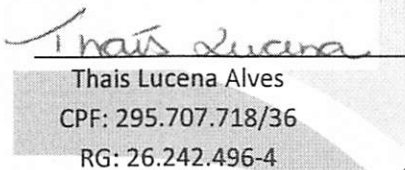 Thaís Lucena
Thais Lucena Alves
CPF: 295.707.718/36
RG: 26.242.496-4